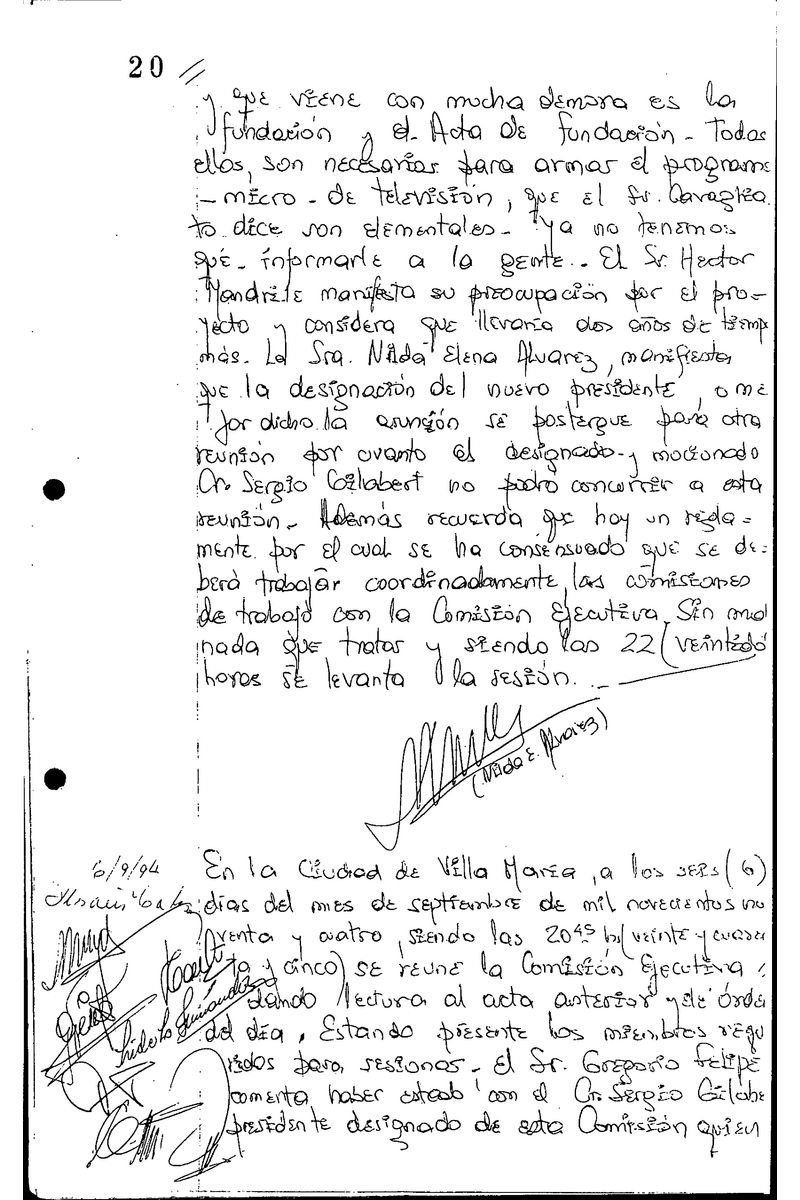 20 //
y que viene con mucha demora es la
fundación y el Acta de fundación - Todas
ellas, son necesarias para armar el programa
- micro - de televisión, que el Sr. Cavaglia
to dice son elementales - ya no tenemos
que informarle a la gente - El Sr. Hector
Mandrile manifesta su preocupación por el pro-
yecto y considera que llevaría dos años de tiemp
más. La Sra. Nilda Elena Alvarez, manifiesta
que la designación del nuevo presidente, o me
jor dicho la asunción se postergue para otra
reunión por cuanto el designado y mocionado
Cr. Sergio Gilabert no podrá concurrir a esta
reunión - Además recuerda que hoy un regla-
mente por el cual se ha consensuado que se de-
berá trabajar coordinadamente las comisiones
de trabajo con la Comisión Ejecutiva. Sin más
nada que tratar y siendo las 22 (veintidó
horas se levanta la sesión.
(Nilda E. Alvarez)
6/9/94
En la Ciudad de Villa María, a los seis (6)
días del mes de septiembre de mil novecientos no
venta y cuatro, siendo las 20 45 h (veinte y cuare
ta y cinco) se reune la Comisión Ejecutiva,
dando lectura al acta anterior y de órde
del día. Estando presente los miembros requ
ridos para sesionar - el Sr. Gregorio Felipe
comenta haber estado con el Cr. Sergio Gilabe
presidente designado de esta Comisión quien